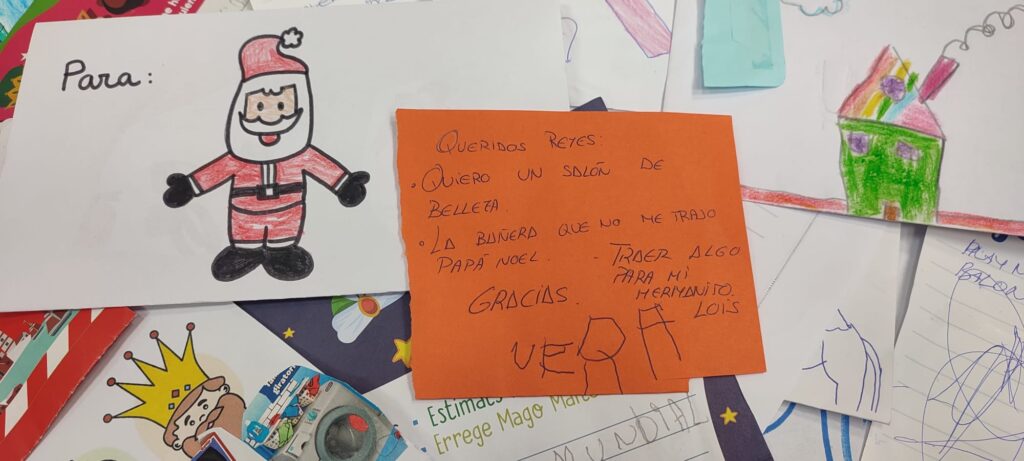 Para:
QUERIDOS REYES:
· QUIERO UN SALÓN DE
BELLEZA.
· LA BAÑERA QUE NO ME TRAJO
PAPÁ NOEL.
- TRAER ALGO
PARA MI
HERMANITO.
LOIS
GRACIAS.
VERA
Errege Mago
MUNDIAL